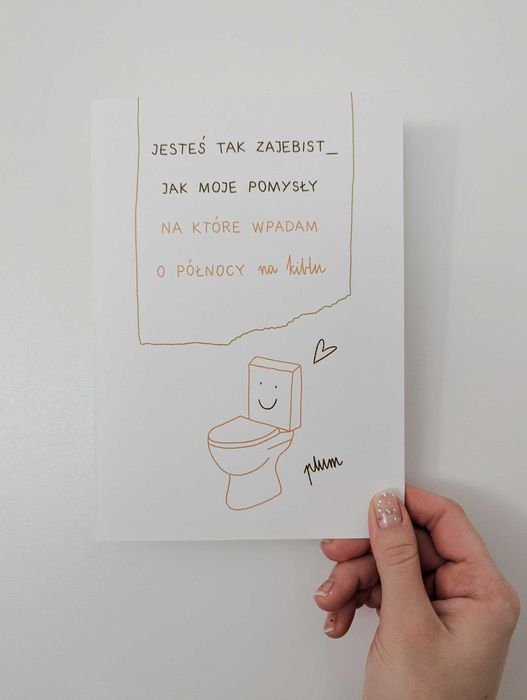 JESTEŚ TAK ZAJEBIST_
JAK MOJE POMYSŁY
NA KTÓRE WPADAM
O PÓŁNOCY na kiblu
plum